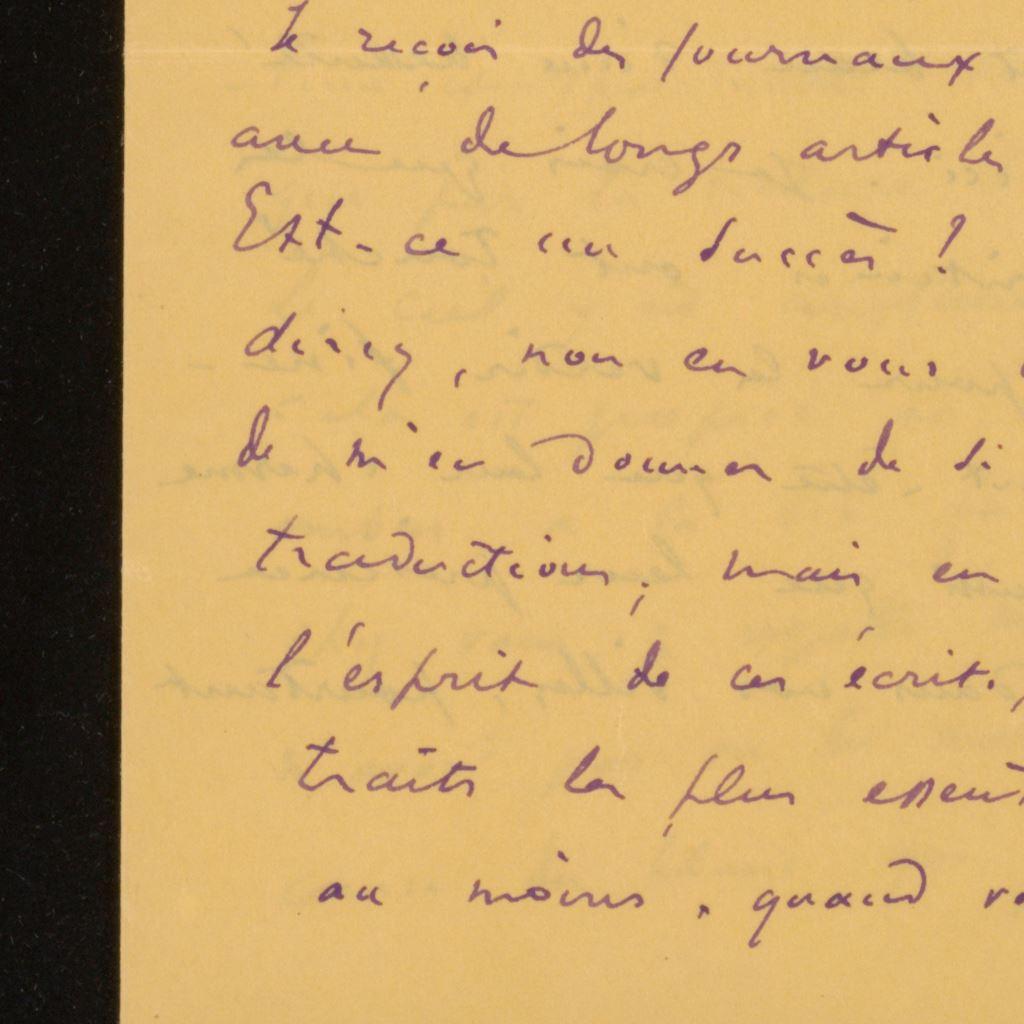 Je reçois des journaux
avec de longs articles
Est-ce un succès !
direz, non en vous
de m'en donner de si
traductions, mais en
l'esprit de ces écrits,
traits les plus essent
au moins, quand vo